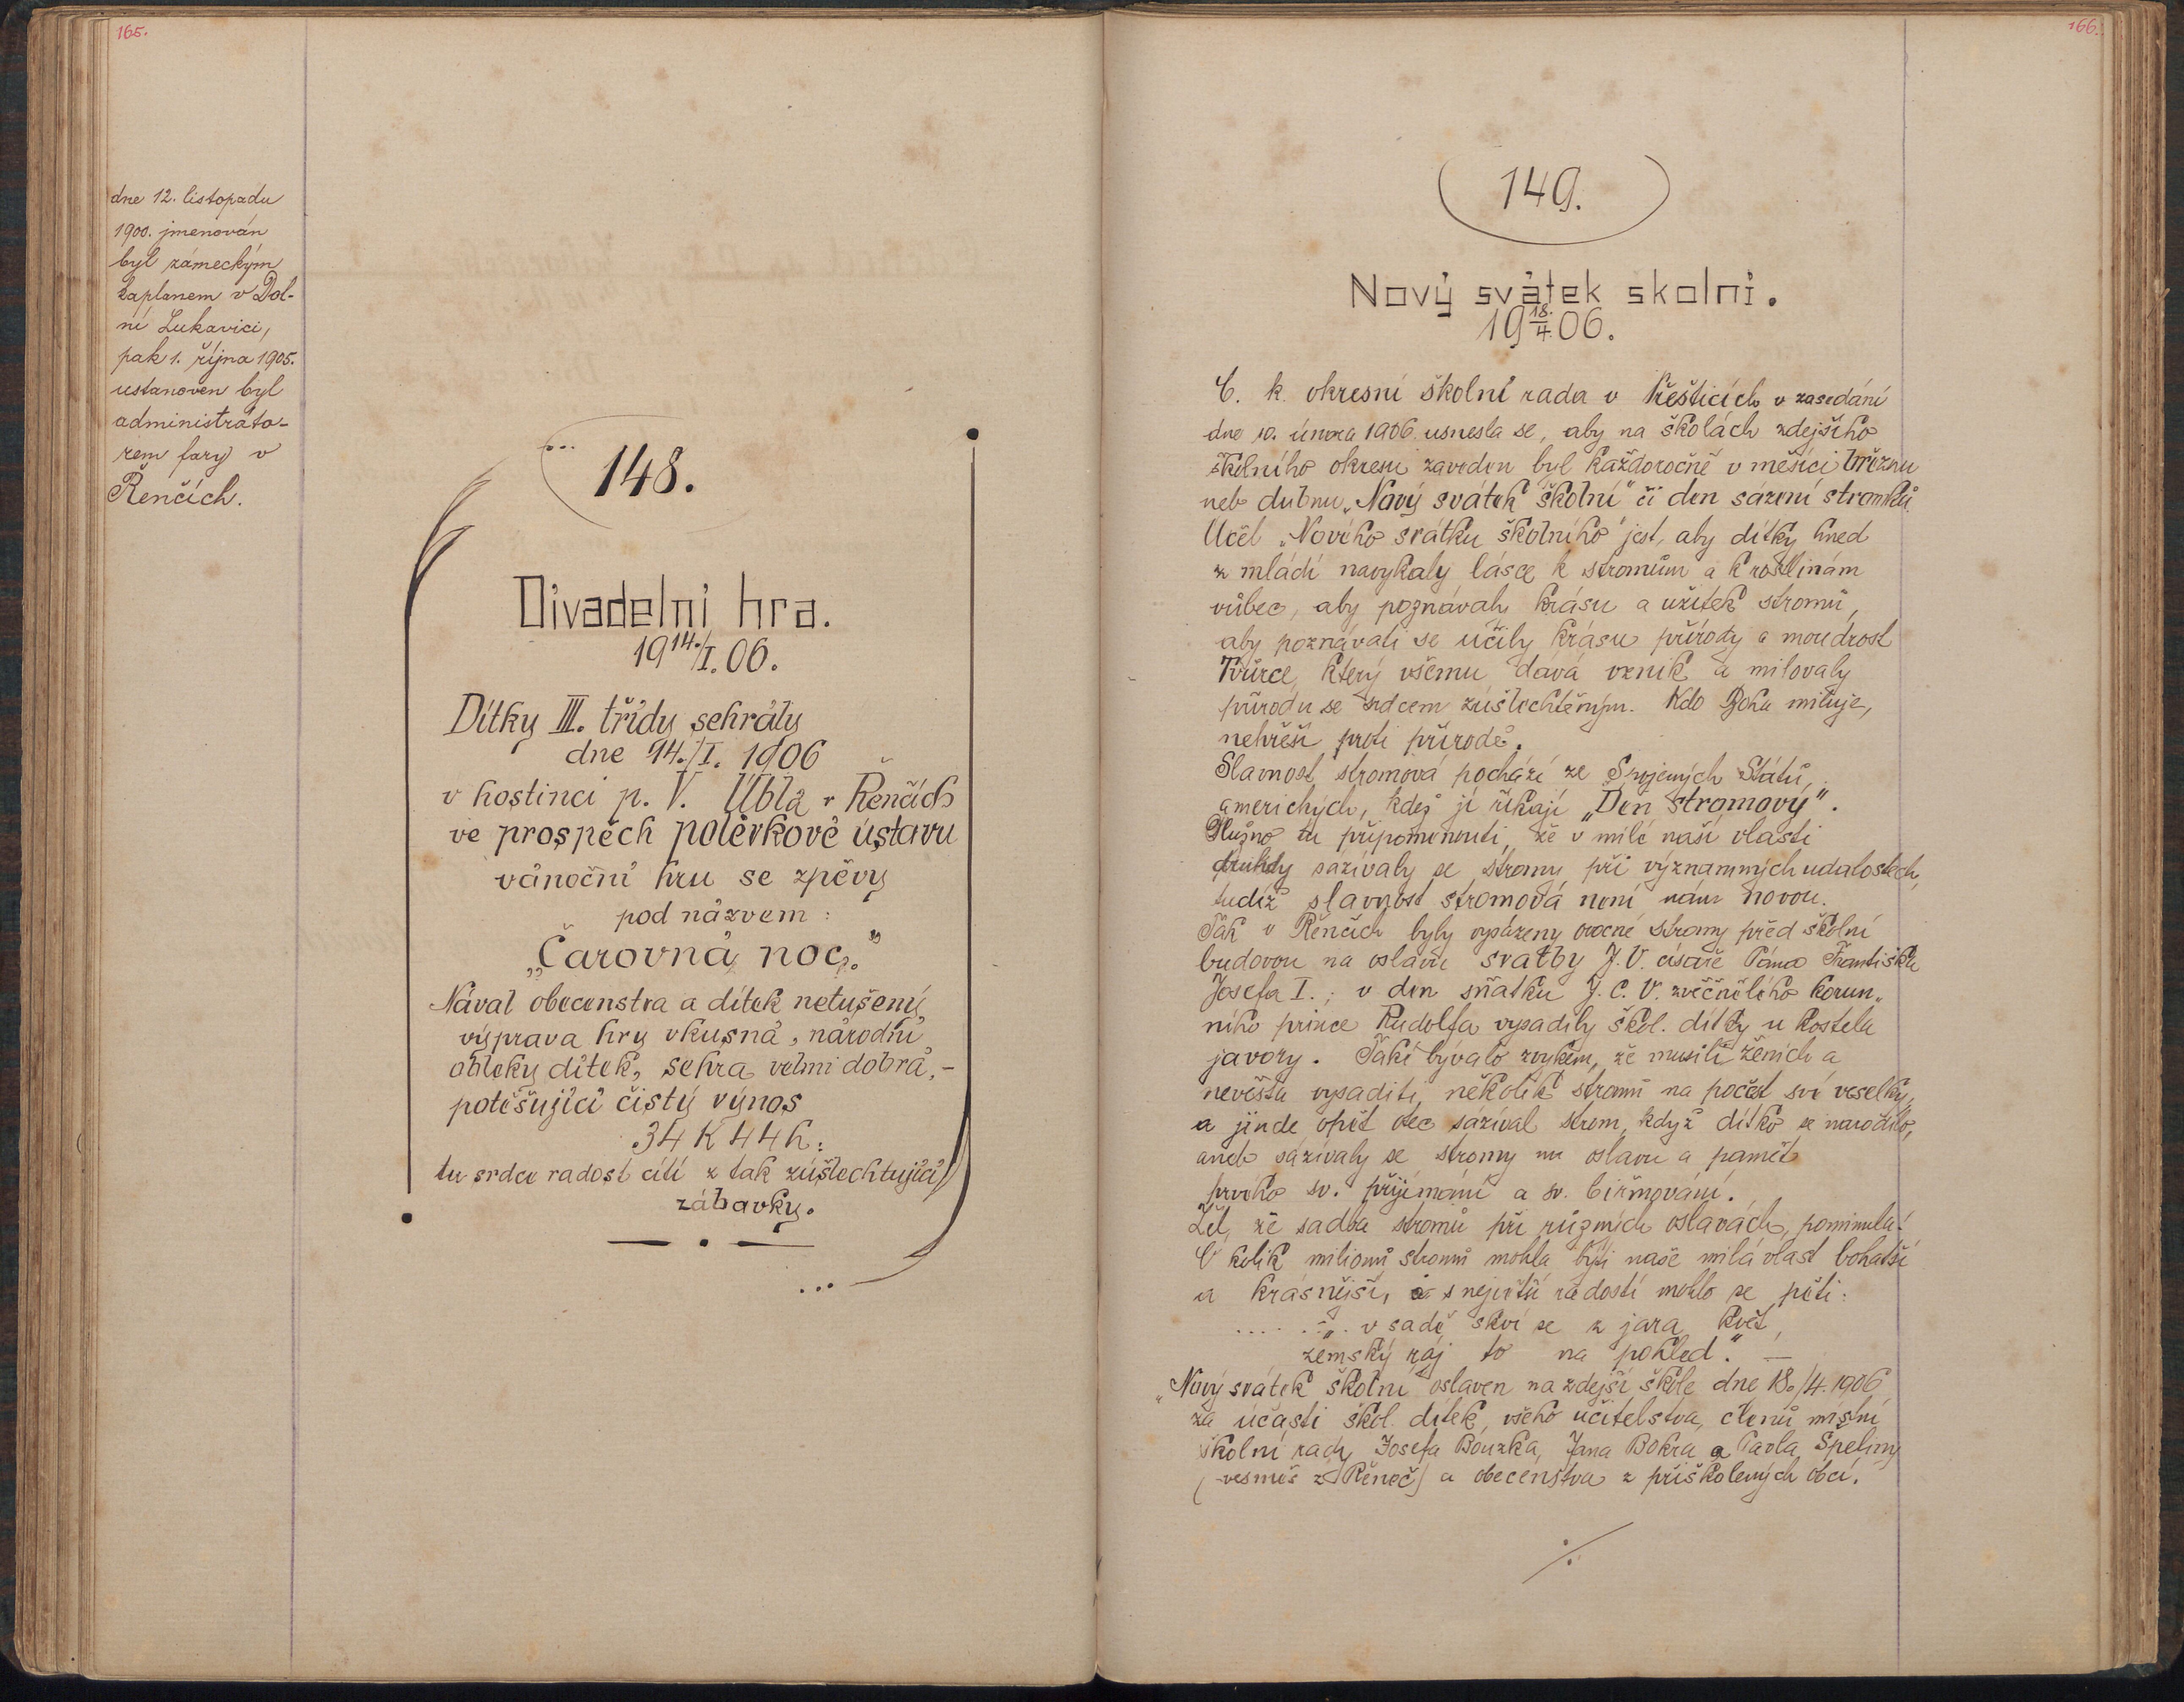 165.
dne 12. listopadu
1900. jmenován
byl zámeckým
kaplanem v Dol-
ní Lukavici,
pak 1. října 1905.
ustanoven byl
administráto-
rem fary v
Řenčích.
148.
Divadelní hra.
19 14./I. 06.
Dítky III. třídy sehrály
dne 14./I. 1906
v hostinci p. V. Übla v Řenčích
ve prospěch polévkové ústavu
vánoční hru se zpěvy
pod názvem:
„Čarovná noc."
Nával obecenstva a dítek netušený,
výprava hry vkusná, národní
obleky dítek, sehra velmi dobrá, -
potěšující čistý výnos
34 K 44 h:
tu srdce radost cítí z tak zušlechtující
zábavky.
166.
149.
Nový svátek skolni.
19 18./4. 06.
C. k. okresní školní rada v Přešticích v zasedání
dne 10. února 1906 usnesla se, aby na školách zdejšího
školního okresu zaveden byl každoročně v měsíci březnu
neb dubnu „Nový svátek školní" či den sázení stromků.
Účel „Nového svátku školního" jest, aby dítky hned
z mládí navykaly lásce k stromům a k rostlinám
vůbec, aby poznávaly krásu a užitek stromů,
aby poznávati se učily krásu přírody a moudrost
Tvůrce, který všemu dává vznik a milovaly
přírodu se srdcem zušlechtěným. Kdo Boha miluje,
nehřeší proti přírodě.
Slavnost stromová pochází ze Spojených Států
amerických, kdež jí říkají „Den stromový".
Slušno tu připomenouti, že v milé naší vlasti
druhdy sázívaly se stromy při významných udalostech,
tudíž slavnost stromová není nám novou.
Tak v Řenčích byly vysázeny ovocné stromy před školní
budovou na oslavu svatby J. V. císaře Pána Františka
Josefa I.; v den sňatku J. C. V. zvěčnělého korun„
ního prince Rudolfa vysadily škol. dítky u kostela
javory. Také bývalo zvykem, že musili ženich a
nevěsta vysaditi několik stromů na počest své veselky,
a jinde opět otec sázíval strom, když dítko se narodilo,
aneb sázívaly se stromy na oslavu a paměť
prvého sv. přijímání a sv. biřmování.
Žel, že sadba stromů při různých oslavách pominula!
O kolik milionů stromů mohla býti naše milá vlast bohatší
a krásnější, a s největší radostí mohlo se pěti:
..... „. v sadě skví se z jara květ,
zemský ráj to na pohled." —
„Nový svátek školní" oslaven na zdejší škole dne 18./4. 1906
za účasti škol. dítek, všeho učitelstva, členů místní
školní rady Josefa Bouzka, Jana Bokra a Pavla Špeliny
(vesměs z Řenče) a obecenstva z přiškolených obcí.